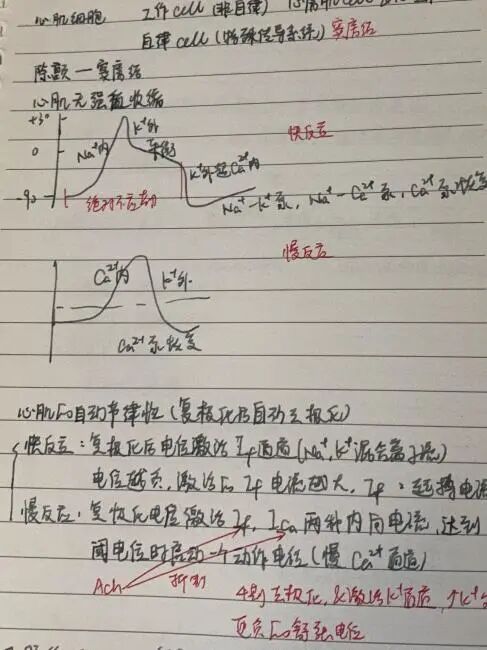 心肌细胞 工作cell (非自律) 心房肌cell
自律cell (特殊传导系统) 窦房结
除颤一窦房结
心肌无强直收缩
+30 K⁺外 快反应
0 Na⁺内 K⁺外超Ca²⁺内
-90 绝对不应期 Na⁺-K⁺泵, Na⁺-Ca²⁺泵, Ca²⁺泵恢复
慢反应
Ca²⁺内 K⁺外
Ca²⁺泵恢复
心肌的自动节律性 (复极化后自动去极化)
快反应: 复极化后电位激活If通道 (Na⁺, K⁺混合离子流)
电位越负, 激活的If电流越大, If: 起搏电流
慢反应: 复极化电位激活If, ICa两种内向电流, 达到
阈电位时启动一个动作电位 (慢Ca²⁺通道)
Ach 抑制 去极化, &激活K⁺通道, ↑K⁺
更负的舒张电位